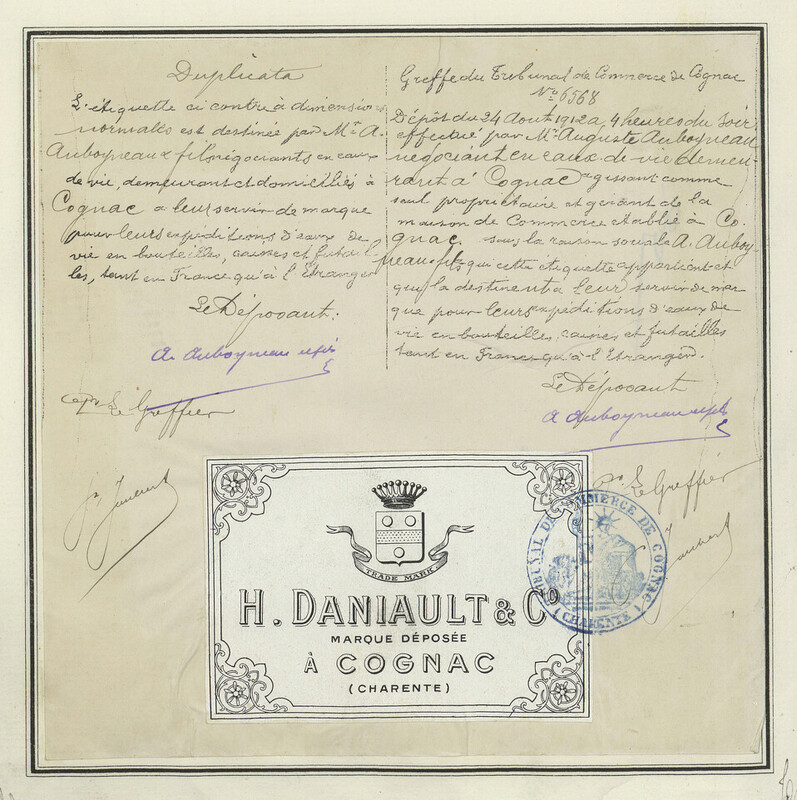 Duplicata
L'étiquette ci contre à dimensions
normales est destinée par Mr A.
Auboyneau & fils négociants en eaux
de vie, demeurant et domiciliés à
Cognac a leur servir de marque
pour leurs expéditions d'eaux de
vie en bouteilles, caisses et futail-
les, tant en France qu'à l'Etranger
Le Déposant:
A. Auboyneau & fils
Le Greffier
Greffe du Tribunal de Commerce de Cognac
No 6568
Dépôt du 24 Aout 1912 a 4 heures du soir
effectué par Mr Auguste Auboyneau
négociant en eaux de vie demeu-
rant à Cognac agissant comme
seul propriétaire et gérant de la
maison de Commerce établie à Co-
gnac sous la raison sociale A. Auboy-
neau & fils qui cette étiquette appartient et
qui la destinent a leur servir de mar
que pour leurs expéditions d'eaux de
vie en bouteilles, caisses et futailles
tant en France qu'à l'Etranger.
Le Déposant
A Auboyneau & fils
Le Greffier
Jaubert
TRADE MARK
H. DANIAULT & Co
MARQUE DÉPOSÉE
À COGNAC
(CHARENTE)
TRIBUNAL DE COMMERCE DE COGNAC
(CHARENTE)